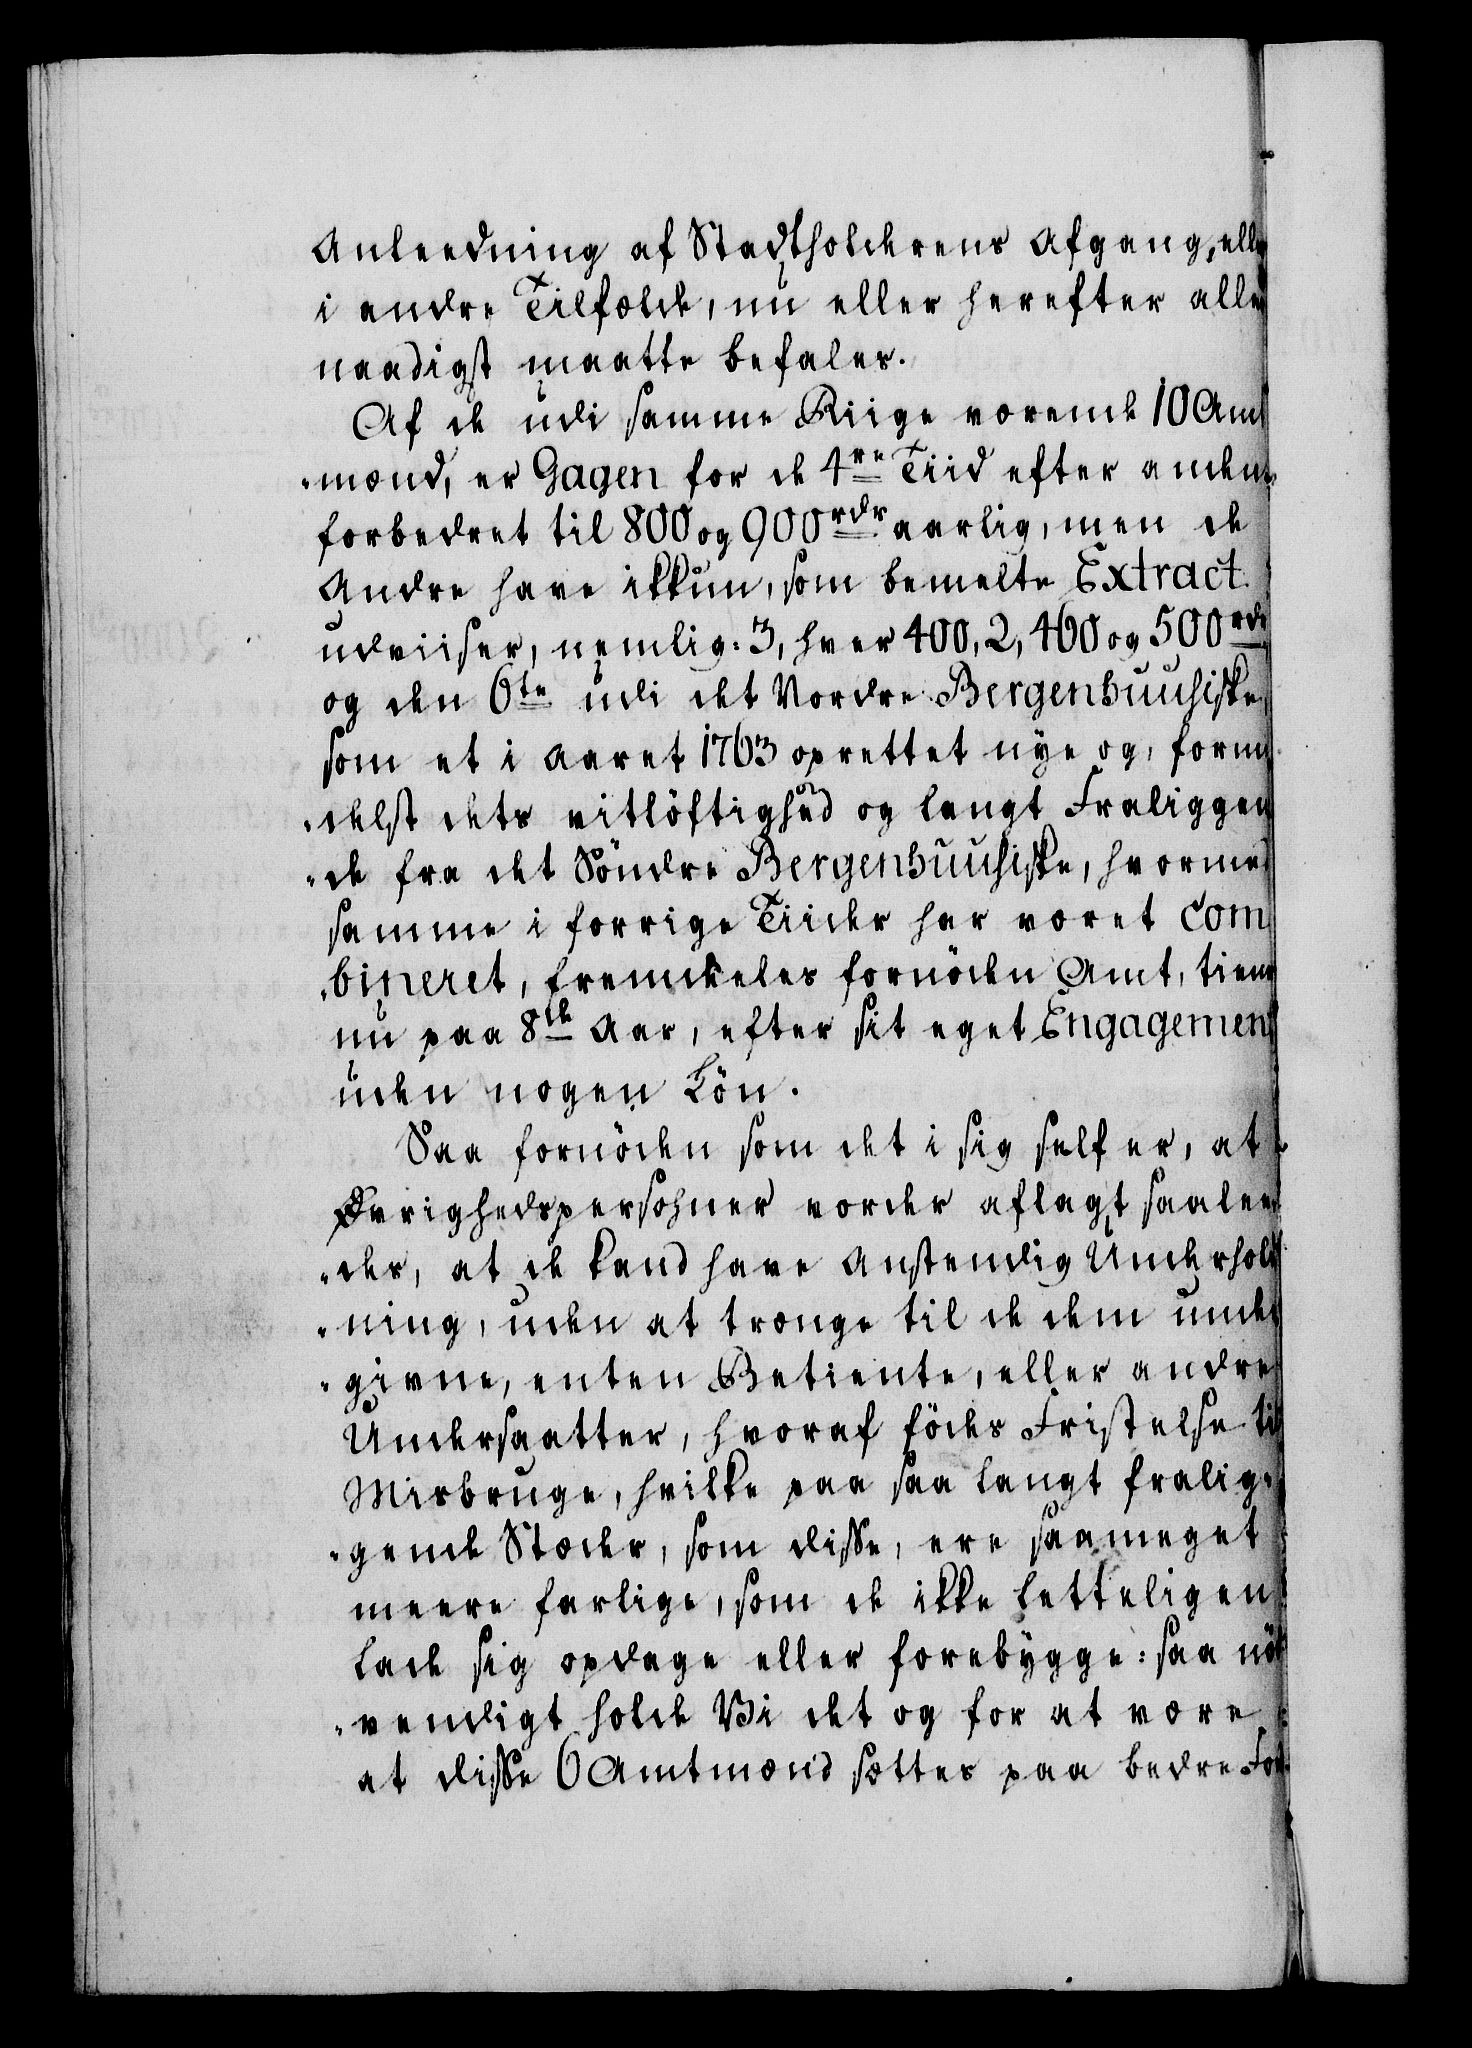 Anleedning af Stadtholderens Afgang, elle
i andre Tilfælde, nu eller herefter aller
naadigst maatte befales.
Af de udi samme Riige værende 10 Amt
-mænd, er Gagen for de 4re Tiid efter anden
forbedret til 800 og 900 rdr aarlig, men de
Andre have ikkun, som bemelte Extract
udviiser, nemlig: 3, hver 400, 2, 460 og 500 rdr
og den 6te udi det Nordre Bergenhuusiske,
som et i Aaret 1763 oprettet nye og, formi
-delst dets vitlöftighed og langt Fraliggen
-de fra det Söndre Bergenhuusiske, hvormed
samme i forrige Tiider har været Com
-bineret, fremdeeles fornöden Amt, tiener
nu paa 8de Aar, efter sit eget Engagement
uden nogen Lön.
Saa fornöden som det i sig self er, at
Øvrighedspersohner vorder aflagt saalee
-des, at de kand have Anstendig Underhold
-ning, uden at trænge til de dem under
-givne, enten Betiente, eller andre
Undersaatter, hvoraf födes Fristelse til
Misbruge, hvilke paa saa langt fralig-
-gende Stæder, som disse, ere saameget
meere farlige, som de ikke letteligen
lade sig opdage eller forebygge: saa nöd
-vendigt holde Vi det og for at være
at disse 6 Amtmænd sættes paa bedre Fod